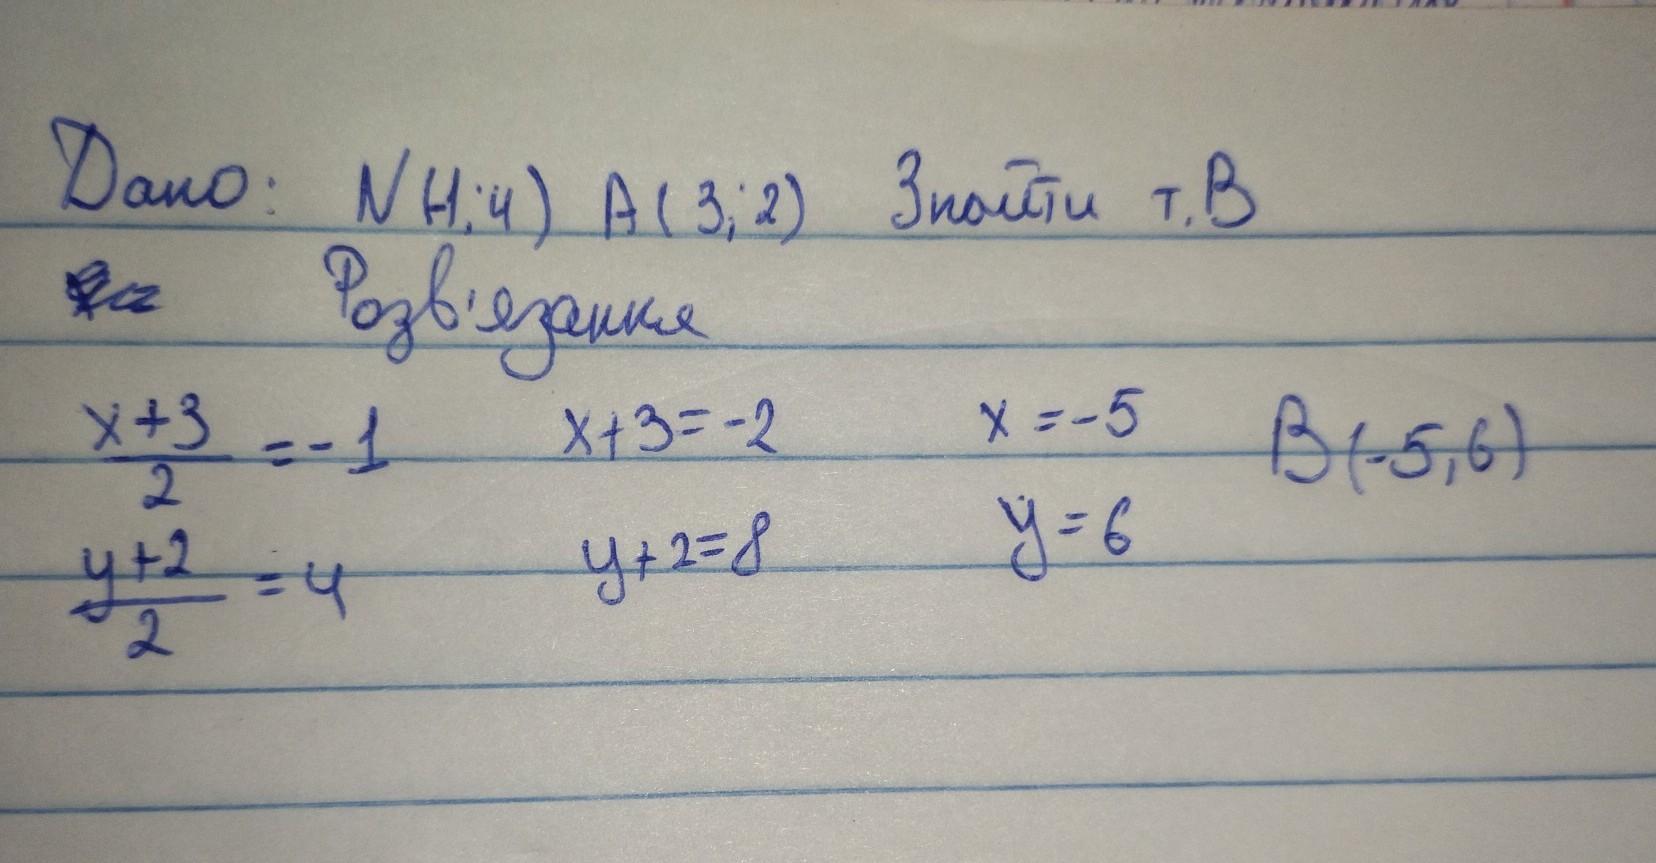 Дано: N(-1;4) A(3;2) Знайти т.В
Розв'язання
x+3/2 = -1 x+3=-2 x=-5 B(-5,6)
y+2/2 = 4 y+2=8 y=6